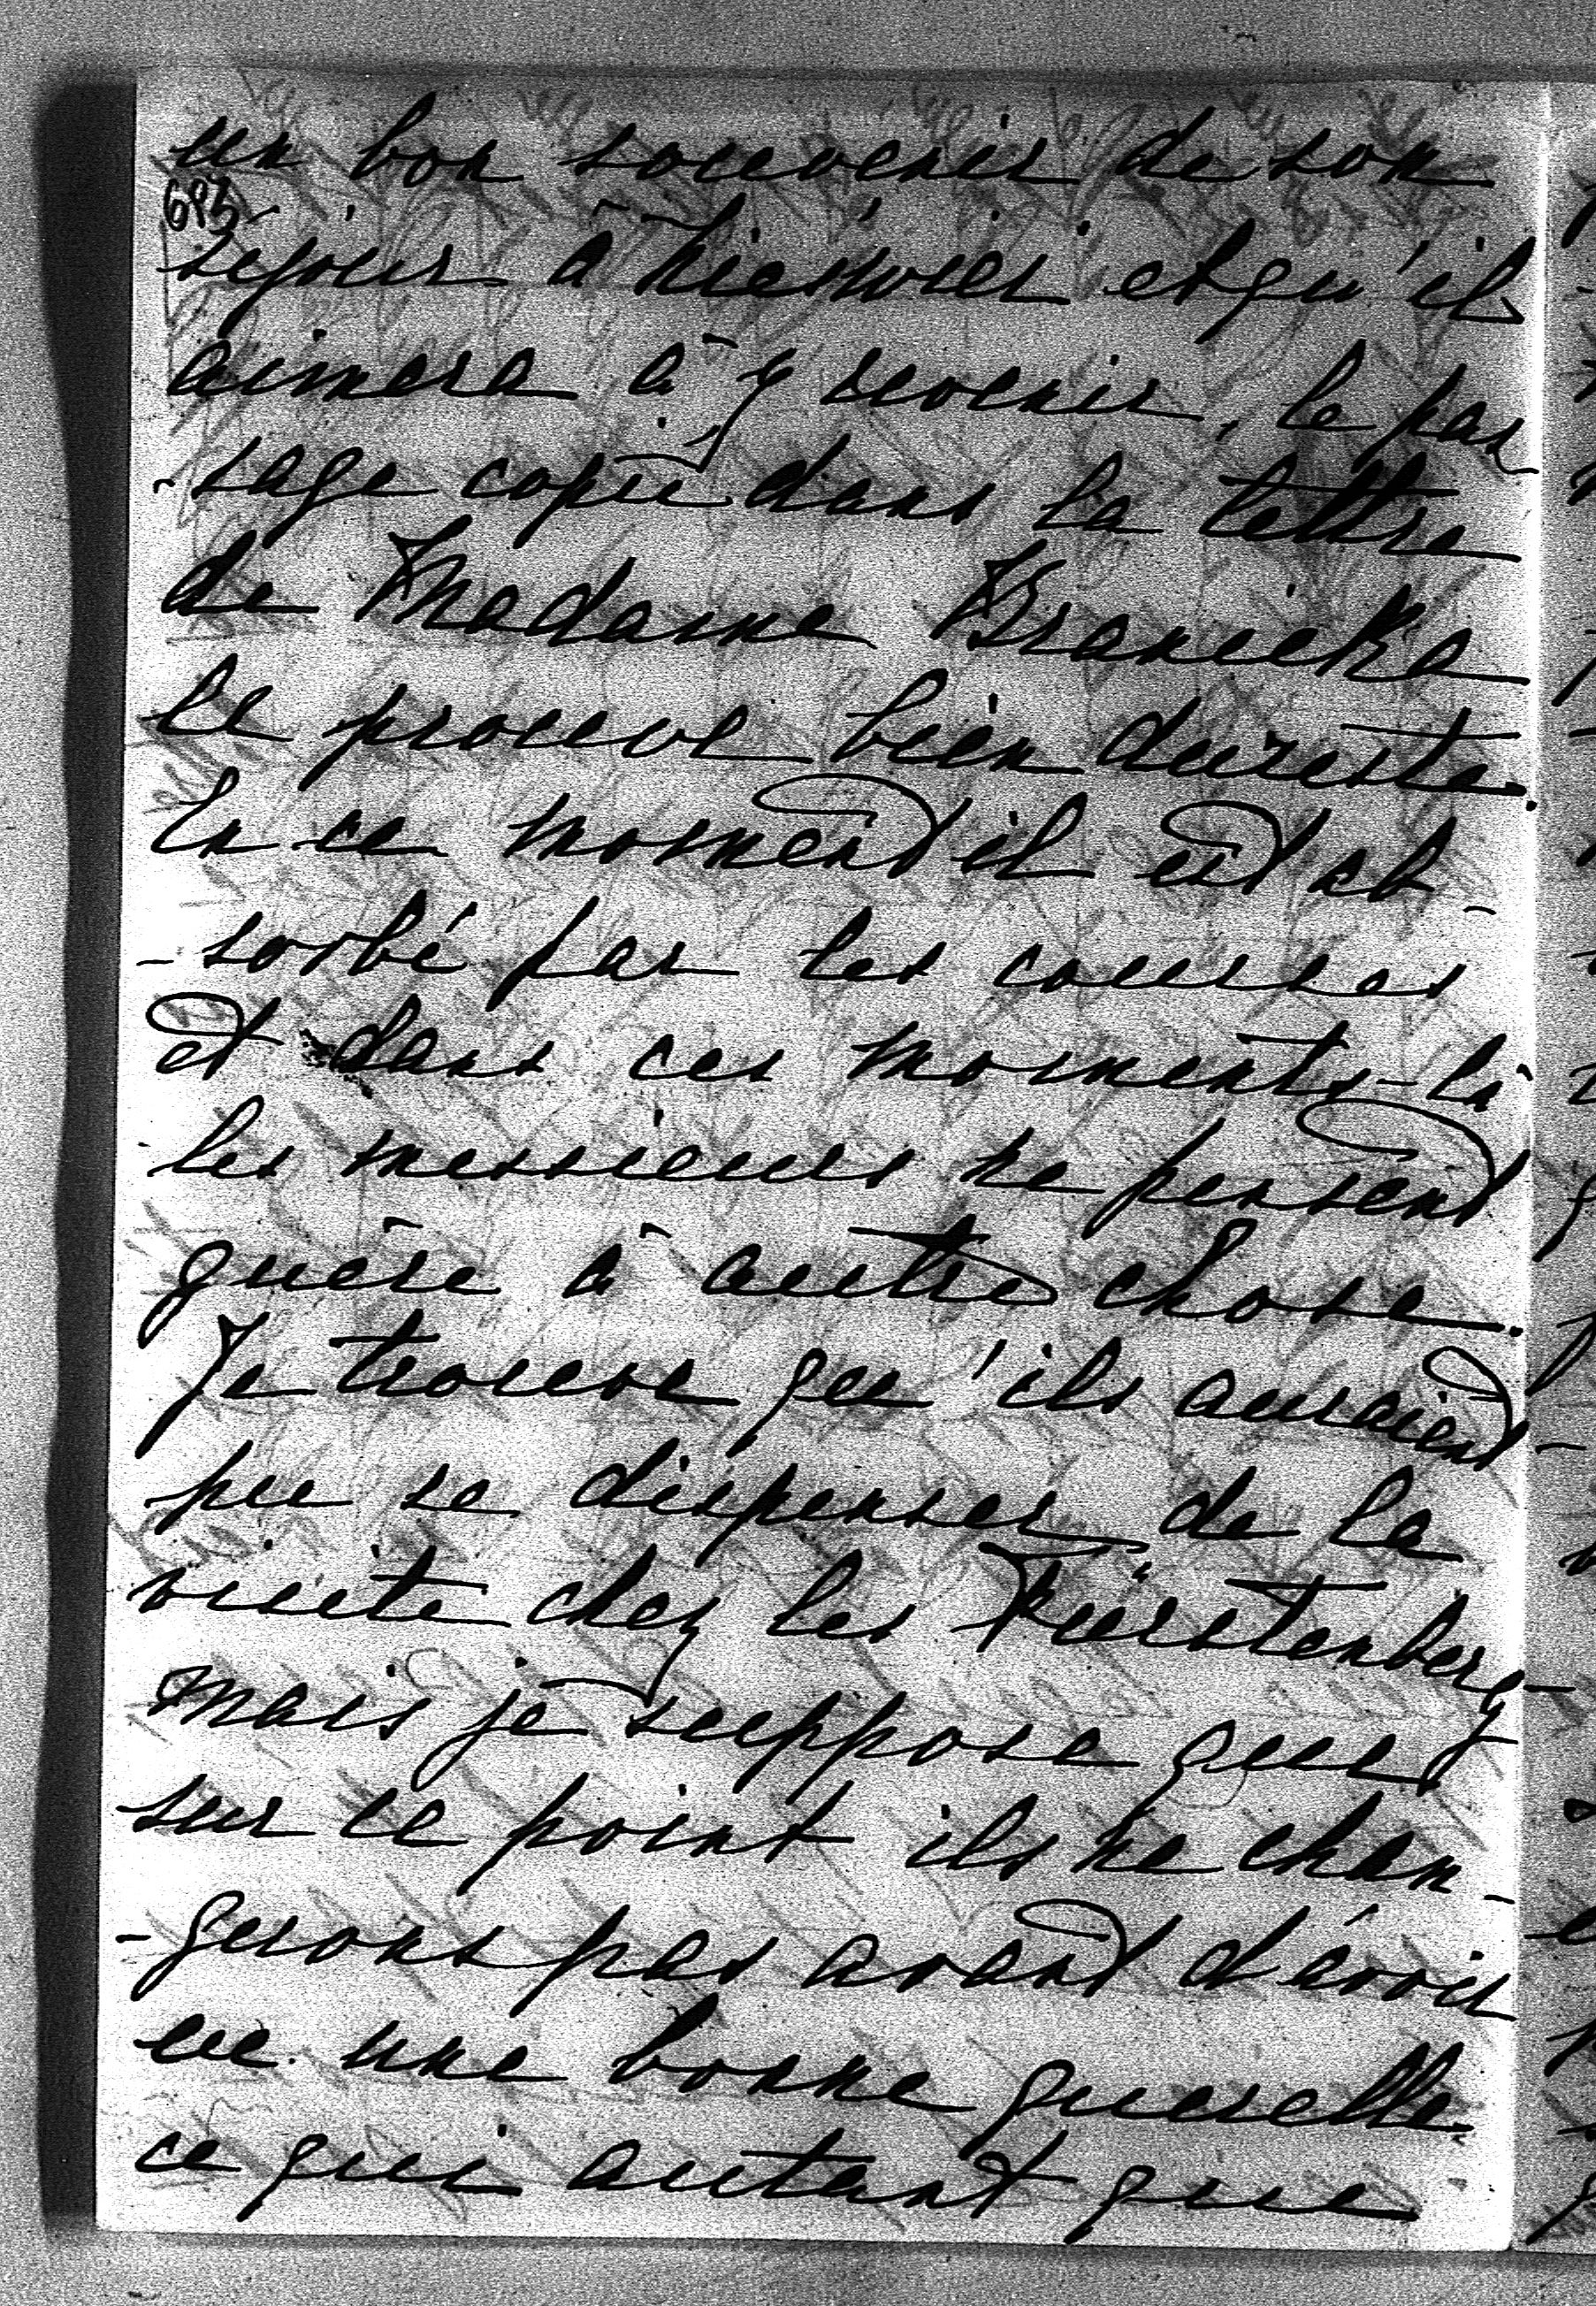 un bon souvenir de son
693
séjour à Nieswiei et qu'il
aimera à y revenir, le pas
-sage copié dans la lettre
de Madame Branicka
le prouve bien dureste.
En ce moment il est ab-
-sorbé par les courses
et dans ces moments-là
les messieurs ne pensent
guère à autre chose.
Je trouve qu'ils auraient
pu se dispenser de la
visite chez les Fürstenberg-
mais je suppose que
sur ce point ils ne chan-
-gerons pas avant d'avoir
eu une bonne querelle
ce qui autant que